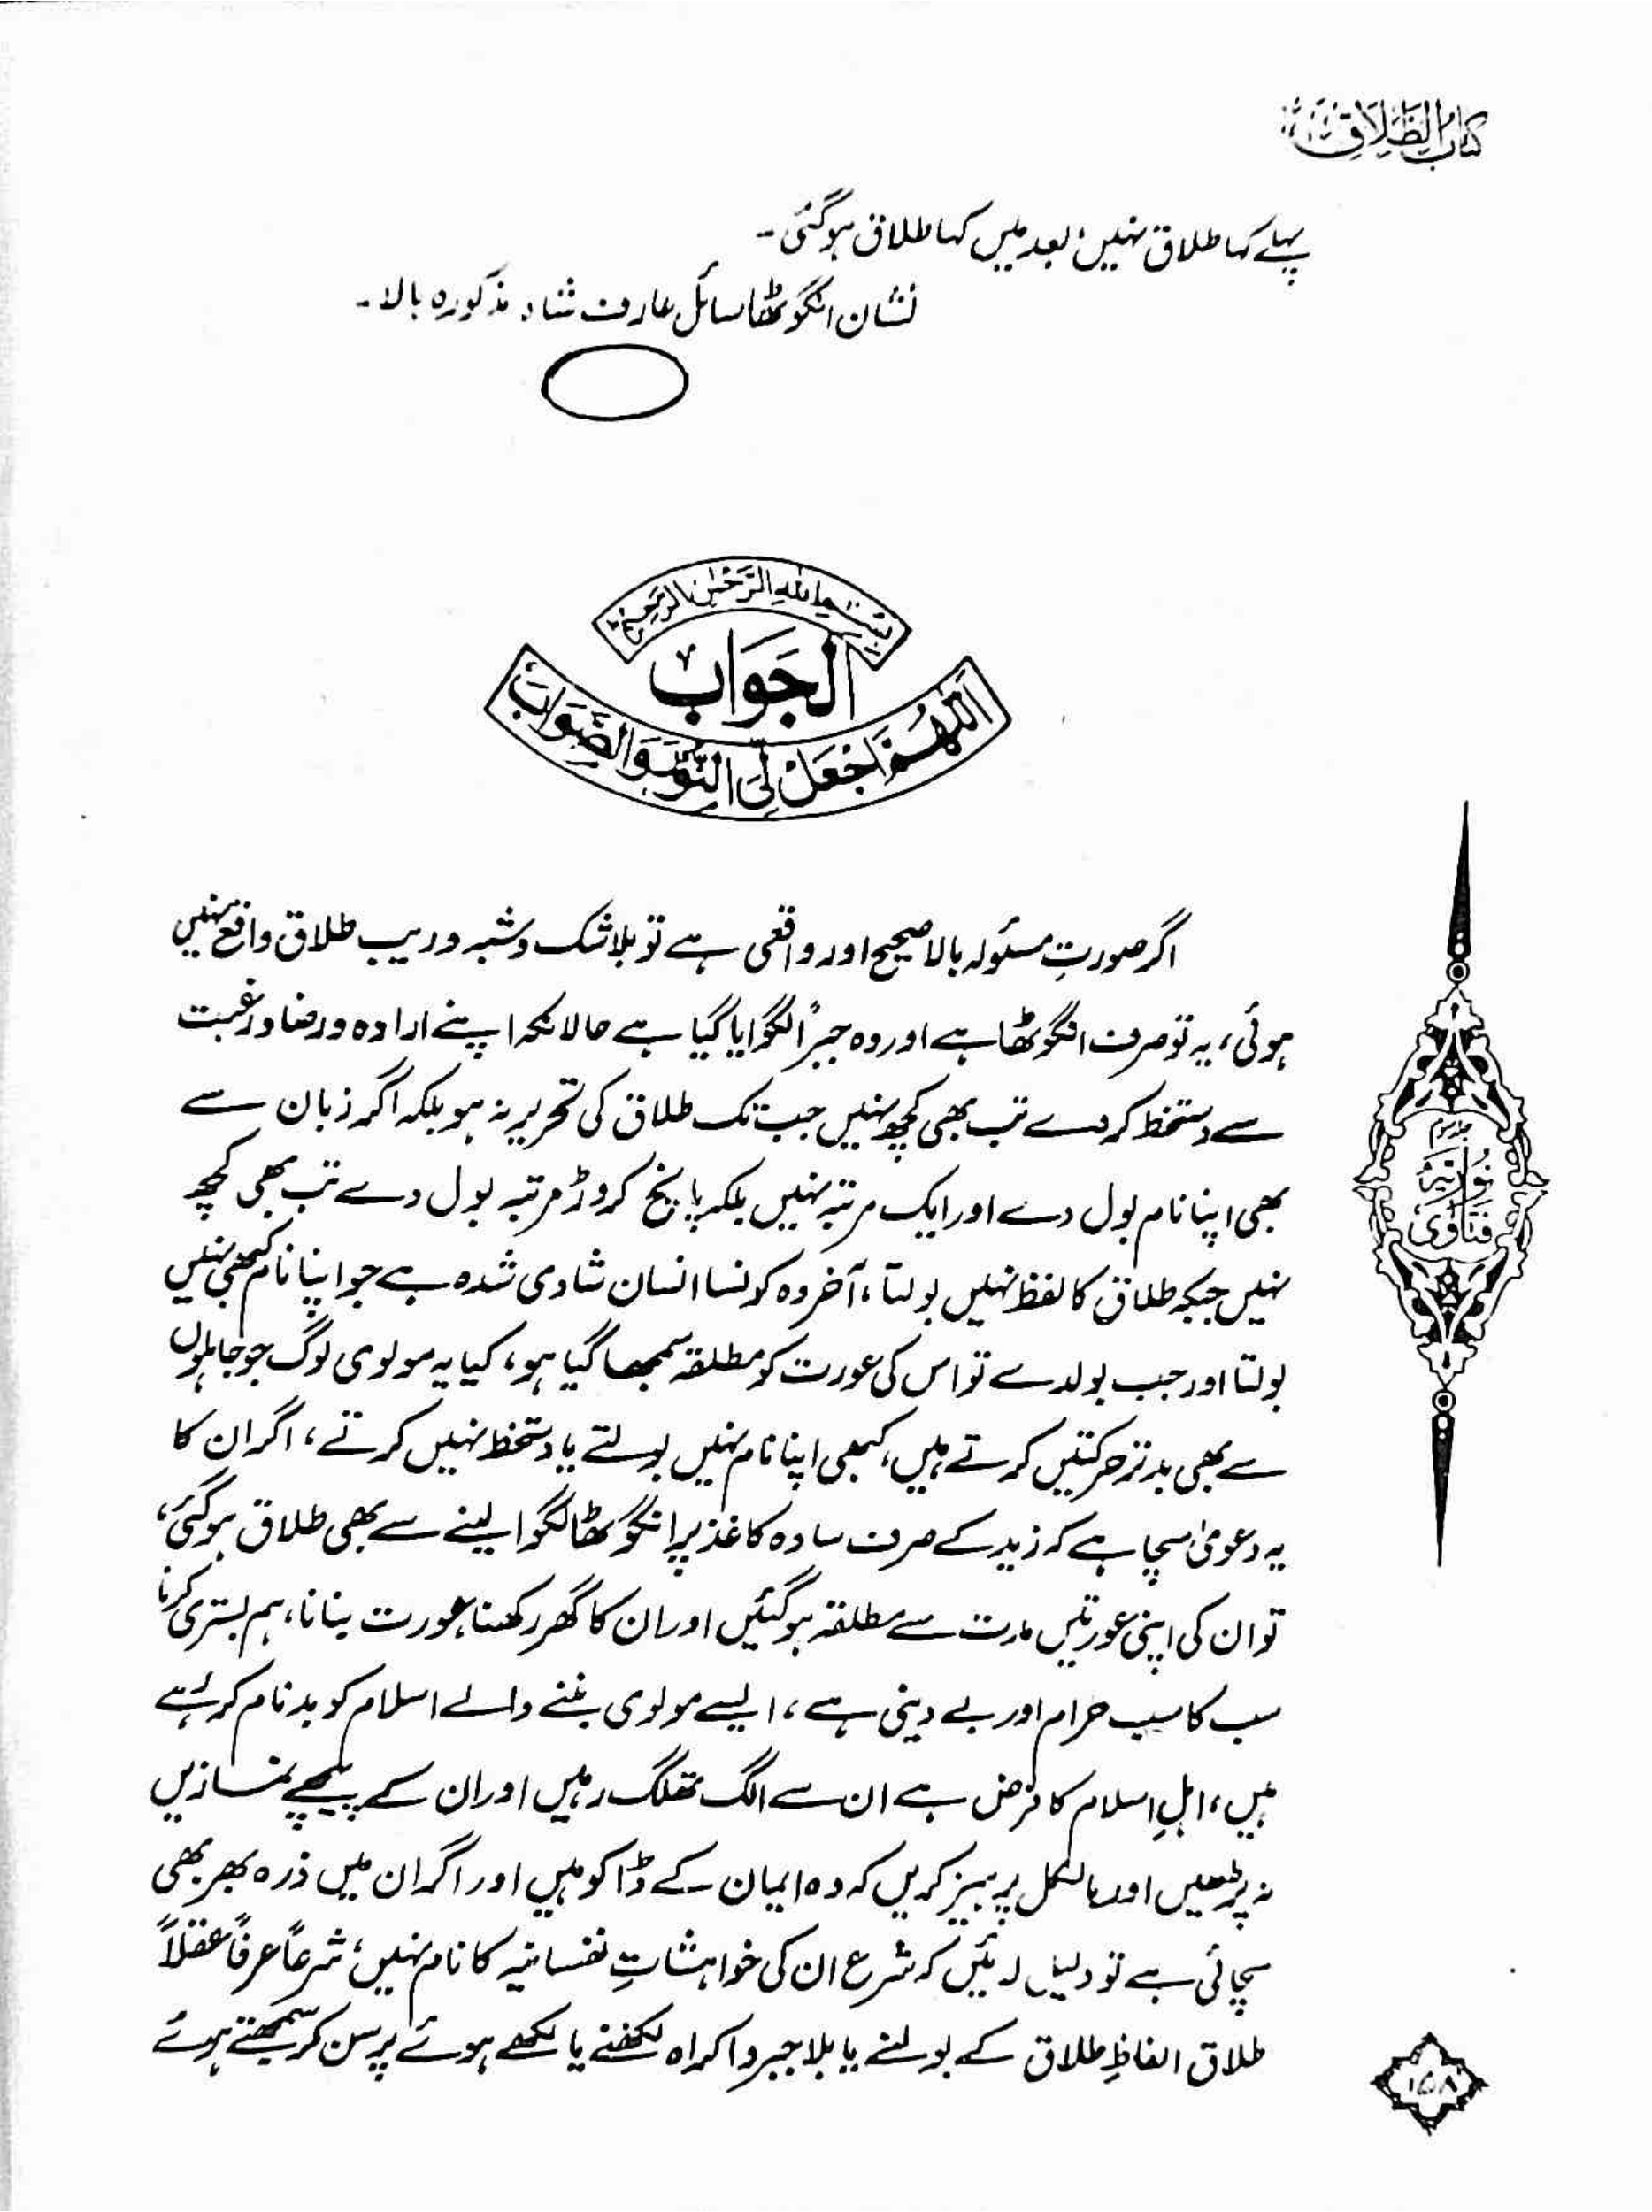 کتاب الطلاق
پہلے کہا طلاق نہیں، بعد میں کہا طلاق ہوگئی۔
نشان انگوٹھا سائل عارف شاہ مذکورہ بالا۔
بِسْمِ اللهِ الرَّحْمٰنِ الرَّحِيْمِ
الجَوَاب
اَللّٰهُمَّ اجْعَلْ لِيَ النُّوْرَ وَالصَّوَابَ
اگر صورتِ مسئولہ بالا صحیح اور واقعی ہے تو بلا شک و شبہ و ریب طلاق واقع نہیں
ہوئی، یہ تو صرف انگوٹھا ہے اور وہ جبراً لگوایا گیا ہے حالانکہ اپنے ارادہ و رضا و رغبت
سے دستخط کر دے تب بھی کچھ نہیں جب تک طلاق کی تحریر نہ ہو بلکہ اگر زبان سے
بھی اپنا نام بول دے اور ایک مرتبہ نہیں بلکہ پانچ کروڑ مرتبہ بول دے تب بھی کچھ
نہیں جبکہ طلاق کا لفظ نہیں بولتا، آخر وہ کونسا انسان شادی شدہ ہے جو اپنا نام کبھی نہیں
بولتا اور جب بولدے تو اس کی عورت کو مطلقہ سمجھا گیا ہو، کیا یہ مولوی لوگ جو جاہلوں
سے بھی بدتر حرکتیں کرتے ہیں، کبھی اپنا نام نہیں بولتے یا دستخط نہیں کرتے، اگر ان کا
یہ دعویٰ سچا ہے کہ زید کے صرف سادہ کاغذ پر انگوٹھا لگوا لینے سے بھی طلاق ہوگئی،
تو ان کی اپنی عورتیں مدت سے مطلقہ ہوگئیں اور ان کا گھر رکھنا، عورت بنانا، ہم بستری کرنا
سب کا سب حرام اور بے دینی ہے، ایسے مولوی بننے والے اسلام کو بدنام کر رہے
ہیں، اہلِ اسلام کا فرض ہے ان سے الگ تھلگ رہیں اور ان کے پیچھے نمازیں
نہ پڑھیں اور بالکل پرہیز کریں کہ وہ ایمان کے ڈاکو ہیں اور اگر ان میں ذرہ بھر بھی
سچائی ہے تو دلیل لائیں کہ شرع ان کی خواہشاتِ نفسانیہ کا نام نہیں، شرعاً عرفاً عقلاً
طلاق الفاظِ طلاق کے بولنے یا بلا جبر و اکراہ لکھنے یا لکھے ہوئے پر سن کر سمجھتے ہوئے
جلد سوم
فتاوی نوریہ
۱۵۸